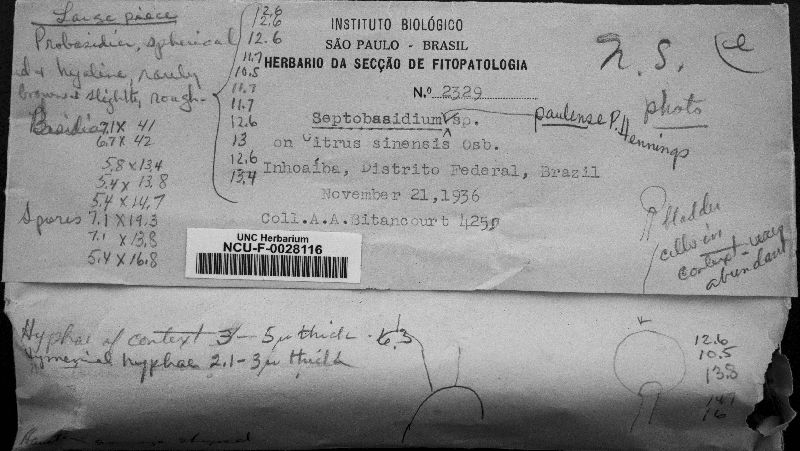 INSTITUTO BIOLÓGICO
SÃO PAULO - BRASIL
HERBARIO DA SECÇÃO DE FITOPATOLOGIA
N.º 2329
Septobasidium sp.
paulense P. Hennings
on Citrus sinensis Osb.
Inhoaíba, Distrito Federal, Brazil
November 21, 1936
Coll. A.A. Bitancourt 425
UNC Herbarium
NCU-F-0028116
Large piece
Probasidia, spherical
hyaline, rarely
brown & slightly rough-
Basidia 7.1 X 41
6.7 X 42
5.8 X 13.4
5.4 X 13.8
5.4 X 14.7
Spores 7.1 X 19.3
7.1 X 13.8
5.4 X 16.8
12.6
12.6
12.6
11.7
10.5
11.7
11.7
12.6
13
12.6
13.4
n.s.
photo
bladder
cells in
context - very
abundant
Hyphae of context 3 - 5 µ thick - 6.3
Hymenial hyphae 2.1 - 3 µ thick
12.6
10.5
13.8
14.7
16